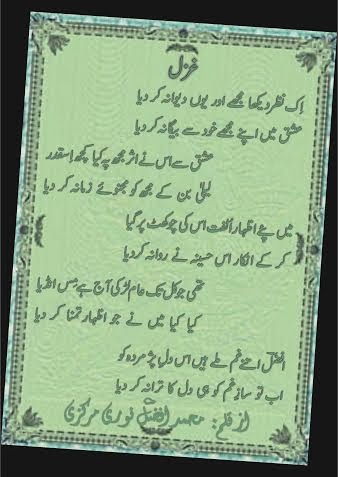 غزل
اِک نظر دیکھا مجھے اور یوں دیوانہ کر دیا
عشق میں اپنے مجھے خود سے بیگانہ کر دیا
عشق سے اس نے اثر مجھ پہ کیا کچھ اِسقدر
لیلیٰ بن کے مجھ کو مجنوئے زمانہ کر دیا
میں پئے اظہارِ اُلفت اس کی چوکھٹ پر گیا
کر کے انکار اس حسینہ نے روانہ کر دیا
تھی جو کل تک عام لڑکی آج ہے مِس انڈیا
کیا کیا میں نے جو اظہارِ تمنا کر دیا
افضلؔ اتنے غم ملے ہیں اس دلِ پژمردہ کو
اب تو سازِ غم کو ہی دل کا ترانہ کر دیا
از قلم: محمد افضلؔ نوری مرکزی